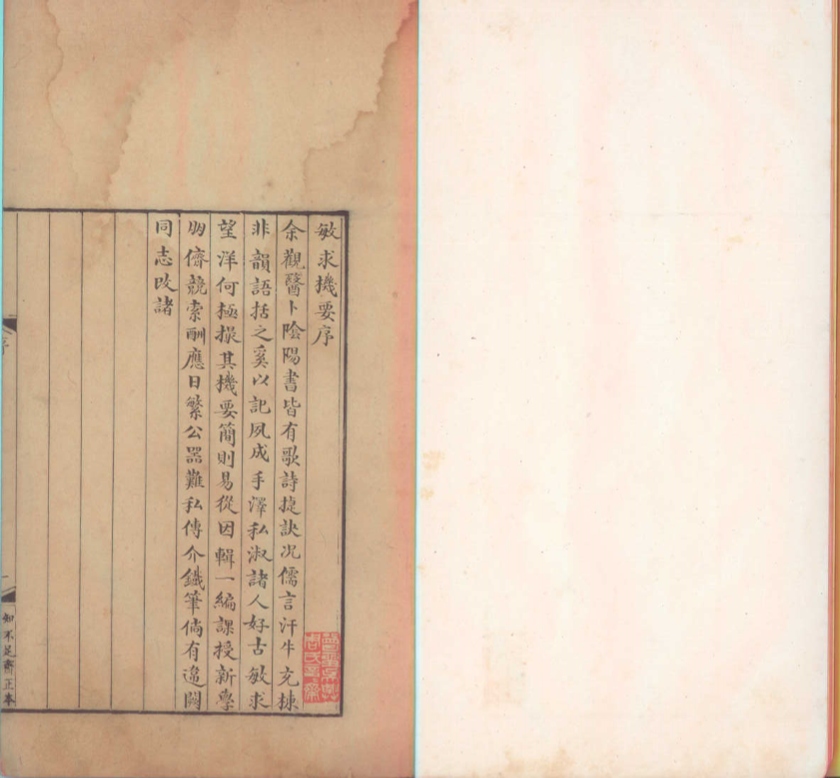 敏求機要序
余觀醫卜陰陽書皆有歌詩捷訣况儒言汗牛充棟
非韻語括之奚以記夙成手澤私淑諸人好古敏求
望洋何極撮其機要簡則易從因輯一編課授新學
朋儕競索酬應日繁公器難私傳介鐵筆倘有遺闕
同志改諸
序
一
知不足齋正本